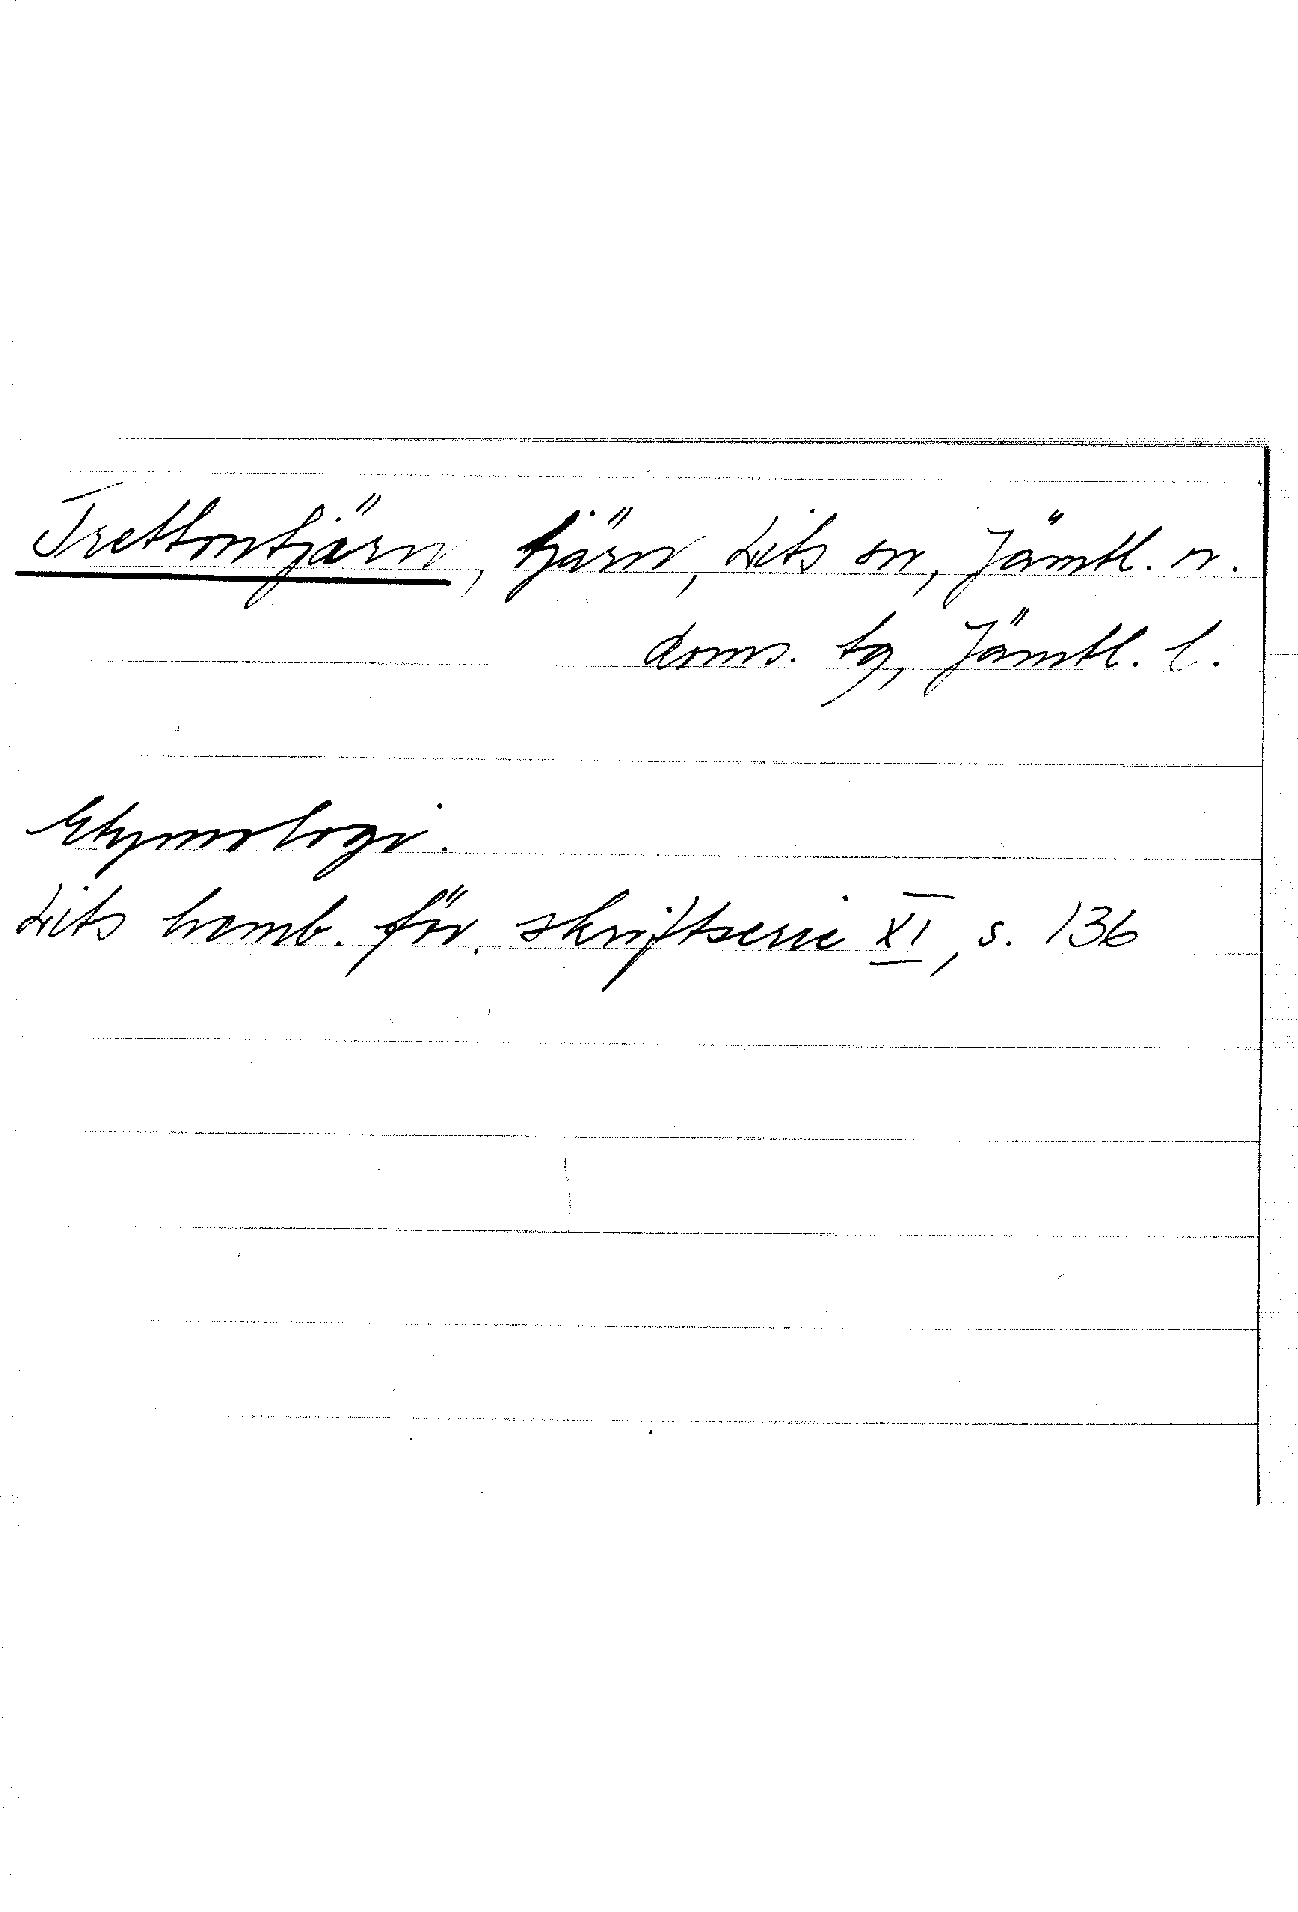 Trettontjärn, tjärn, Lits sn, Jämtl. n.
doms. tg, Jämtl. l.
Etymologi.
Lits hemb. för. skriftserie XI, s. 136